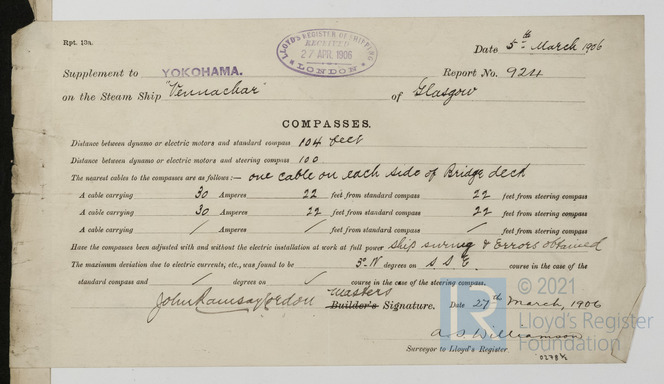 Rpt. 13a.
LLOYD'S REGISTER OF SHIPPING
RECEIVED
27 APR. 1906
LONDON
Date 5th March 1906
Supplement to YOKOHAMA. Report No. 924
on the Steam Ship "Vennachar" of Glasgow
COMPASSES.
Distance between dynamo or electric motors and standard compass 104 feet
Distance between dynamo or electric motors and steering compass 100
The nearest cables to the compasses are as follows:— one cable on each side of Bridge deck
A cable carrying 30 Amperes 22 feet from standard compass 22 feet from steering compass
A cable carrying 30 Amperes 22 feet from standard compass 22 feet from steering compass
A cable carrying / Amperes / feet from standard compass / feet from steering compass
Have the compasses been adjusted with and without the electric installation at work at full power ship swung & Errors obtained
The maximum deviation due to electric currents, etc., was found to be 3° W degrees on S S E course in the case of the
standard compass and / degrees on / course in the case of the steering compass.
John Ramsay Gordon Masters Builder's Signature. Date 27th March, 1906
A S Williamson
Surveyor to Lloyd's Register
© 2021
R
Lloyd's Register
Foundation